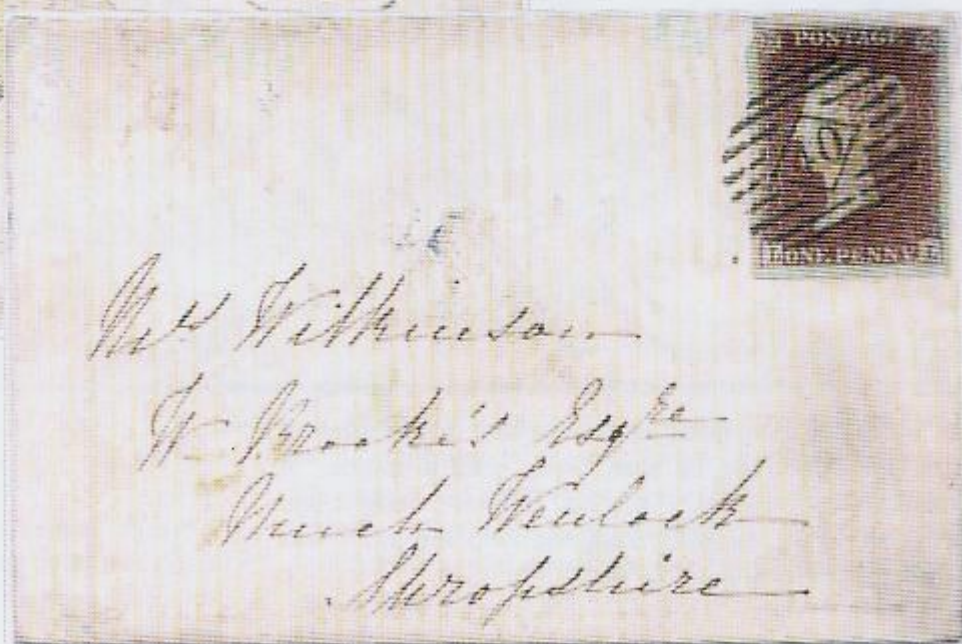 POSTAGE
10
ONE PENNY
Mrs Wilkinson
W. Brooke's Esqre
Much Wenlock
Shropshire